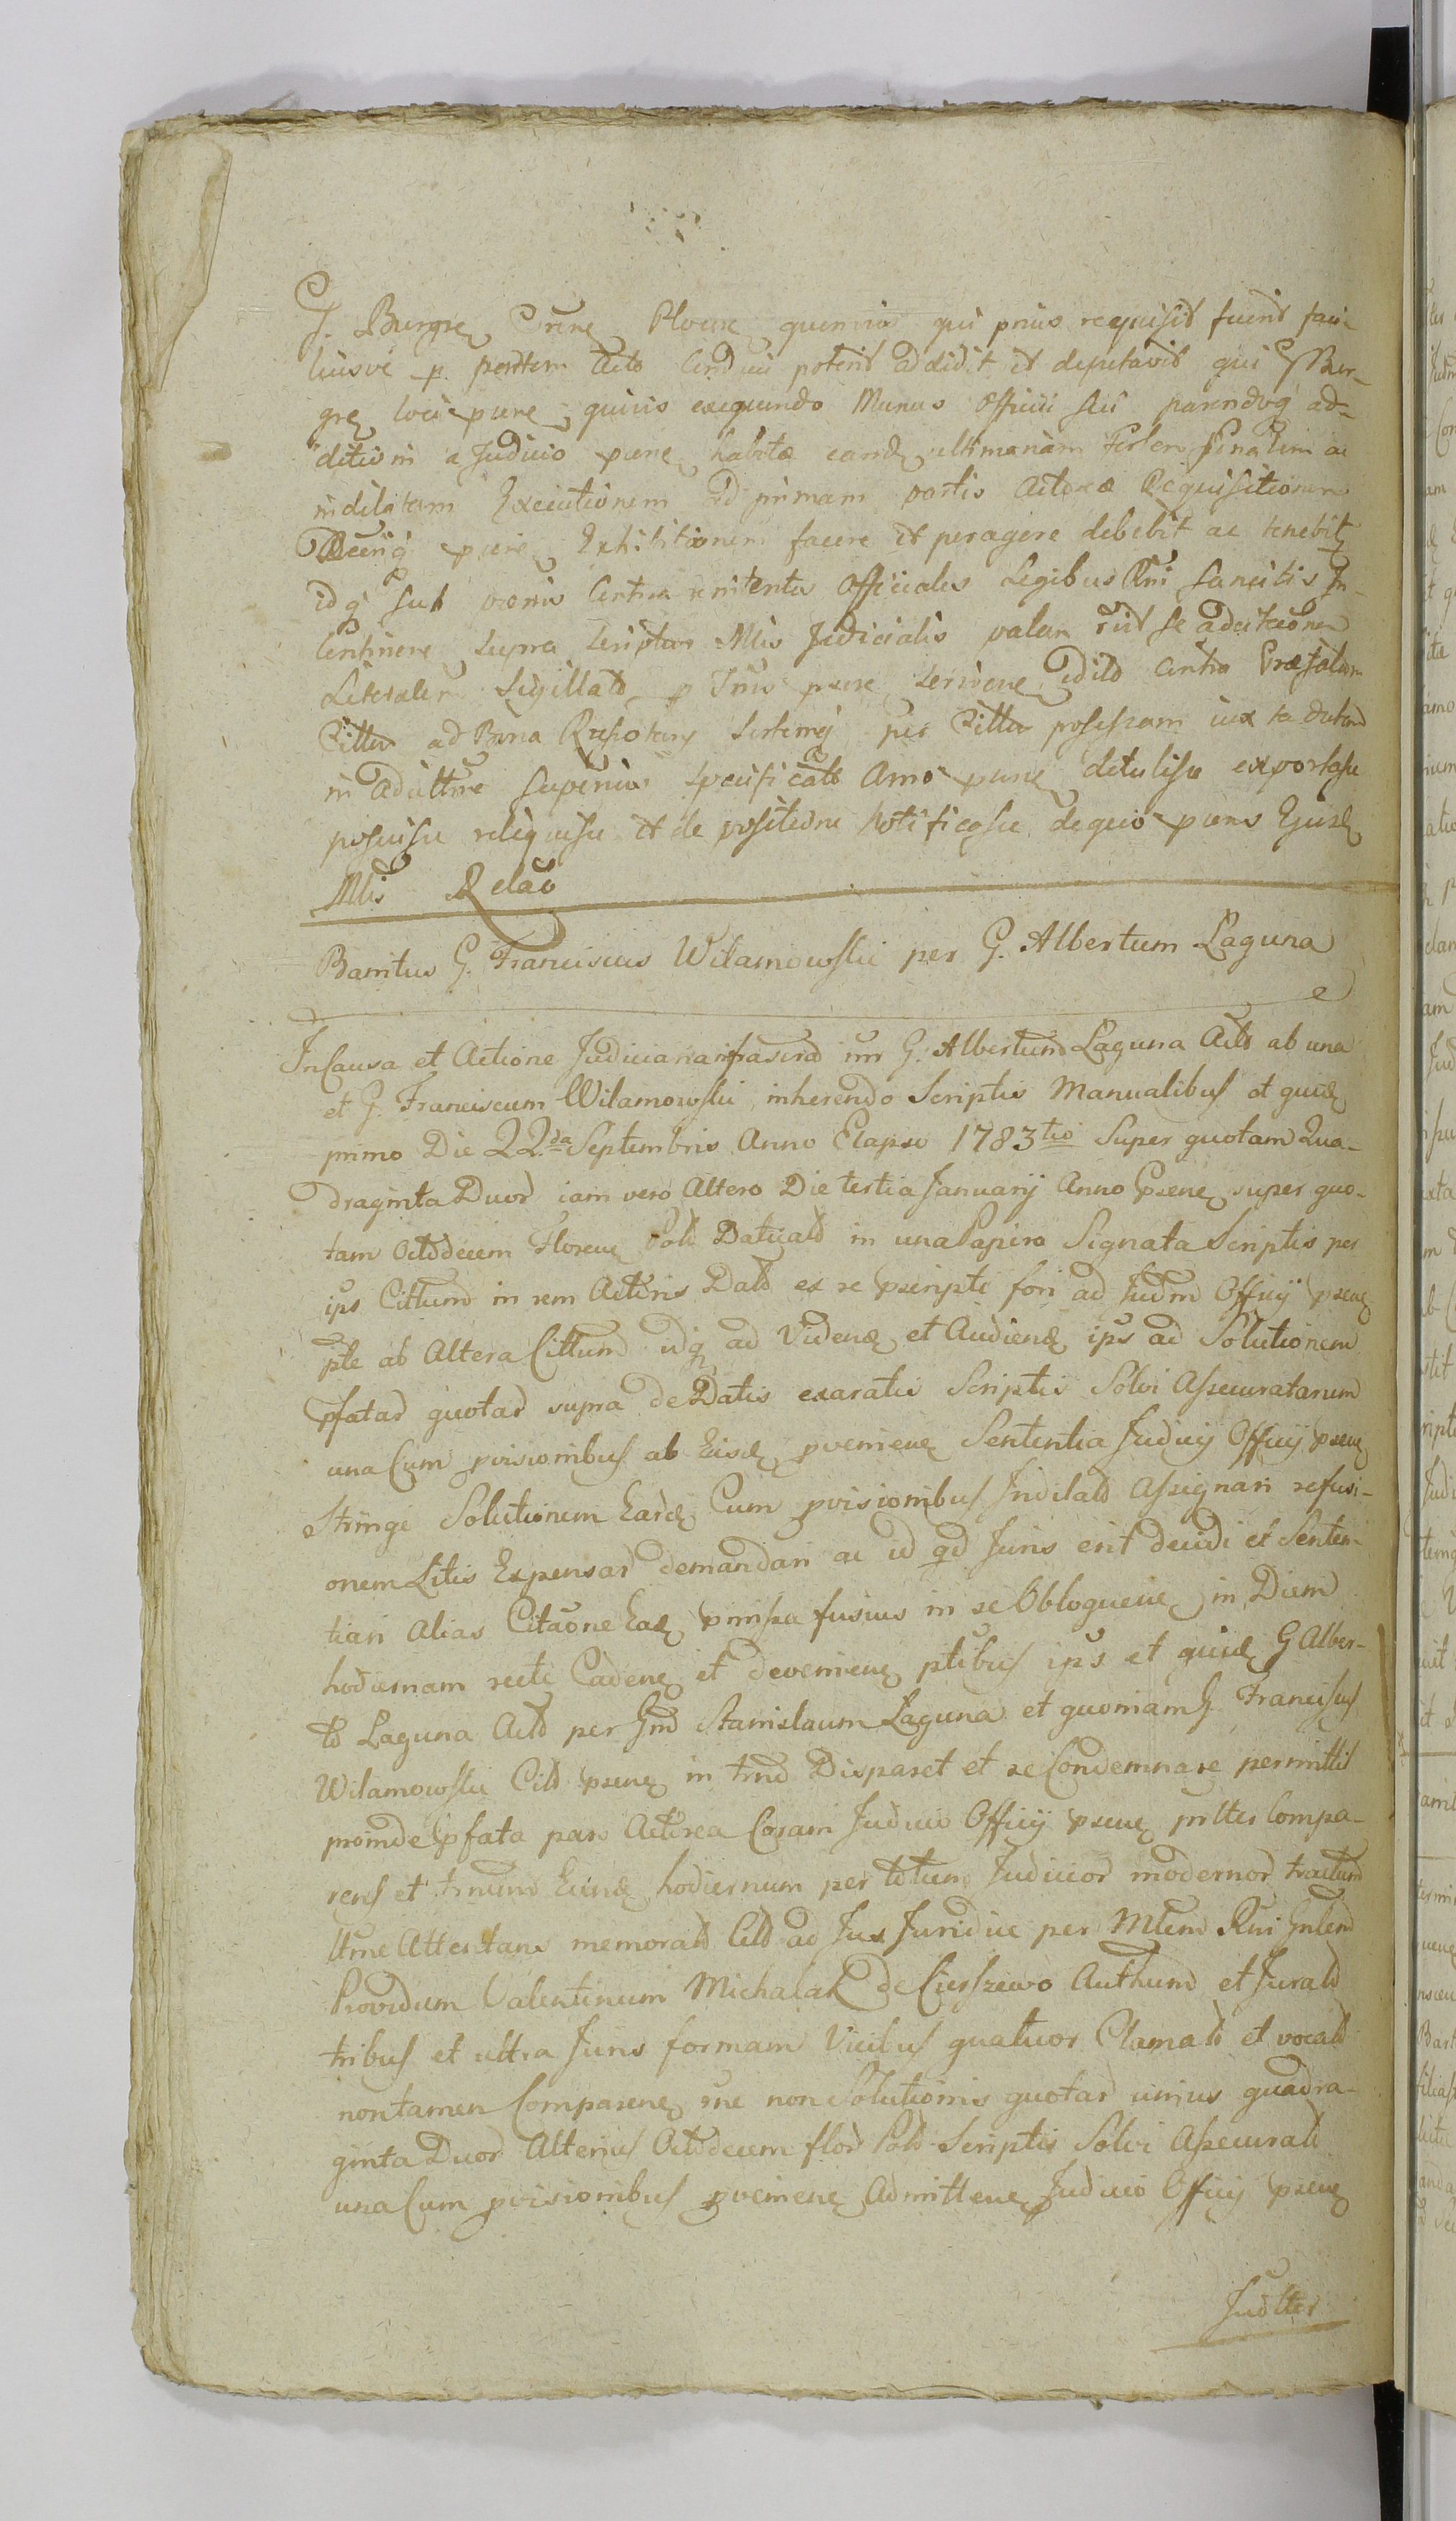 J. Burgre Crene Ploeñ quennis qui prius requisit fuerit faci-
liusve p. partem Acto Cond uri poterit addidit et deputavit qui Bur-
gre loci prene quivis exequendo Munus Officii sui parendoq ad-
ditioni a Judicio prene habita eand ultimariam fertem finalem ac
indilatam Executionem ad primam partis Actorea Requisitionem
prene Exhibitionem facere et peragere debebit ac tenebit
idq sub poenis Contra renitentes Officiales Legibus Rni sancitis In
Continere supra Scriptar Mlis Judicialis palam se additionem
Literalem Sigillato p prene Edito Contra Præfatum
Cittu ad Bona per Cittu possessam
in adcittne superius specificato Anno prene detulisse exportasse
posuisse reliquisse et de positione notificasse de quo prens Ejusd
Mlis Relaõ
Banitus G. Franciscus Wilamowski per G. Albertum Laguna
In Causa et Actione Judiciaria infrascrad inr G. Albertum Laguna Acto ab una
et G. Franciscum Wilamowski inherendo Scriptis Manualibus et quid
primo Die 22da Septembris Anno Elapso 1783tio super quotam Qua-
draginta Duor iam vero Altero Die tertia Januarij Anno Prsene super quo-
tam Octodecem Florene Pold Datuald in una Papiro Signata Scriptis per
ips Cittum in rem Actoris Datd ex re prscripte fori ad Judm Officij prsene
pte ab Altera Cittum idq ad Videnđ et Audienđ ips ad Solutionem
pfatar quotar supra de Datis exaratis Scriptis Solvi Assecuratarum
una Cum pvisionibus ab Eisd pveniene Sententia Judicij Officij prsene
Stringi Solutionem Eard Cum pvisionibus Indilatd Assignari refusi-
onem Litis Expensar demandari ac id qd Juris erit decidi et Senten-
tiari Alias Citaõne Ead pmissa fusius in se Obloquene in Diem
hodiernam recte Cadene et deveniene ptibus ips et quid G Alber-
to Laguna Actd per Gnd Stanislaum Laguna et quoniam G. Francisus
Wilamowski Citd prsene in tmo Disparet et se Condemnare permittit
proinde pfata pars Actorea Coram Judicio Officij prsene pnlter Compa-
rens et tmum Eund hodiernum per totum Judicior modernor tractum
ltme Attestans memoratd Citd ad Jus Juridice per Mlem Rni Gnlem
Providum Valentinum Michalak de Cierszewo Authum et Juratd
tribus et ultra Juris formam Vicibus quatuor Clamatd et vocatd
non tamen Comparene rne non Solutionis quotar unius quadra-
ginta Duor Alterius Octodecem flor Pold Scriptis Solvi Assecuratd
una Cum pvisionibus pveniene Admittene Judicio Officij prsene
Judlter